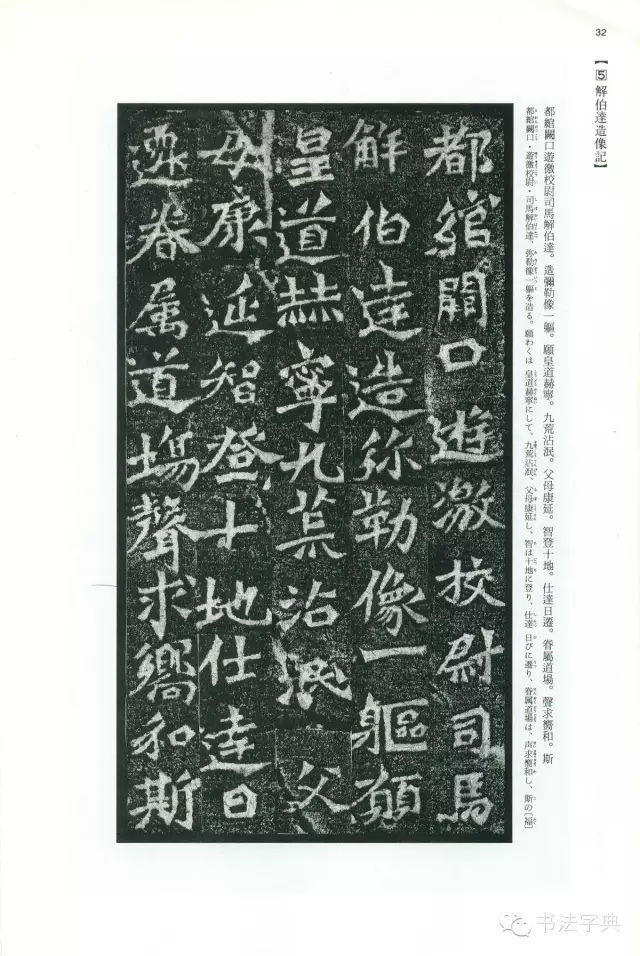 32
【5】解伯達造像記
都綰闕口遊徼校尉司馬解伯達。造彌勒像一軀。願皇道赫寧。九荒沾泯。父母康延。智登十地。仕達日遷。眷屬道場。聲求嚮和。斯
都綰闕口・遊徼校尉・司馬解伯達、弥勒像一軀を造る。願わくは 皇道赫寧にして、九荒沾泯、父母康延し、智は十地に登り、仕達 日びに遷り、眷属道場は、声求嚮和し、斯の〔福〕
都綰闕口遊激校尉司馬
解伯達造弥勒像一軀願
皇道赫寧九荒沾泯父
母康延智登十地仕達日
遷眷属道場聲求嚮和斯
书法字典